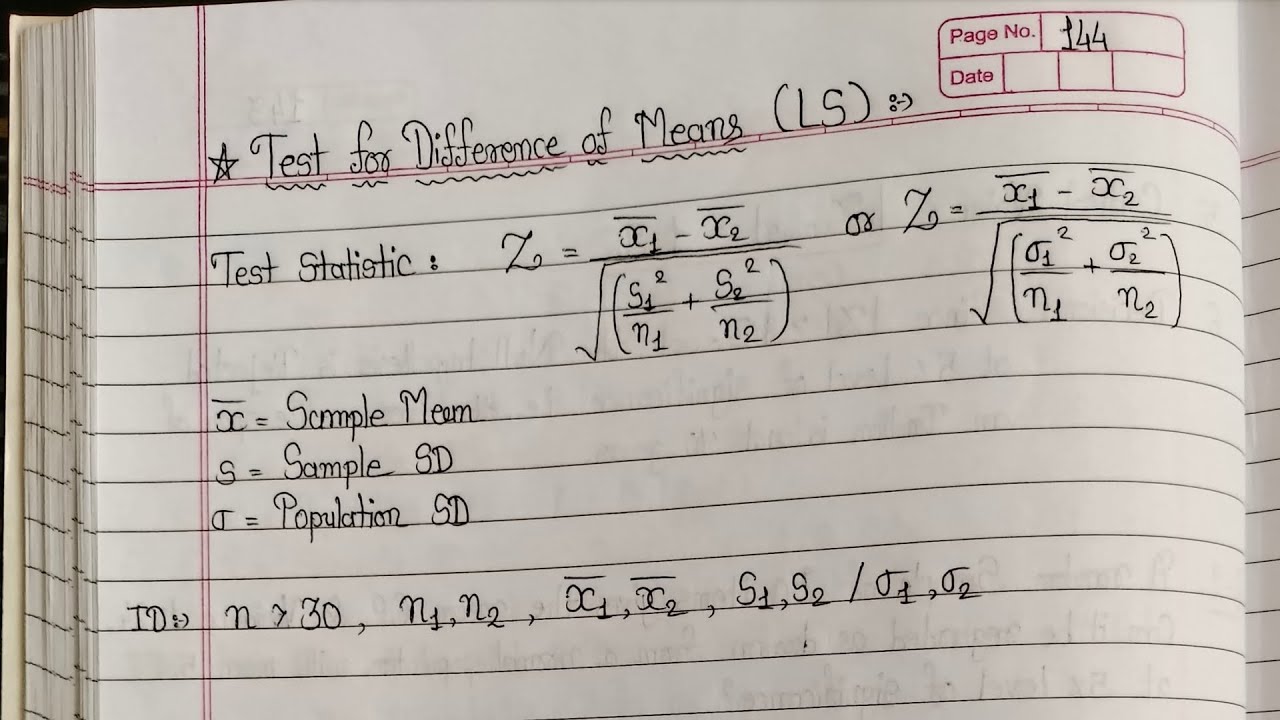 Page No. 144
Date
☆ Test for Difference of Means (LS) :->
Test Statistic : Z = (x̄₁ - x̄₂) / √(S₁²/n₁ + S₂²/n₂) or Z = (x̄₁ - x̄₂) / √(σ₁²/n₁ + σ₂²/n₂)
x̄ = Sample Mean
S = Sample SD
σ = Population SD
ID:-> n > 30, n₁, n₂, x̄₁, x̄₂, S₁, S₂ / σ₁, σ₂